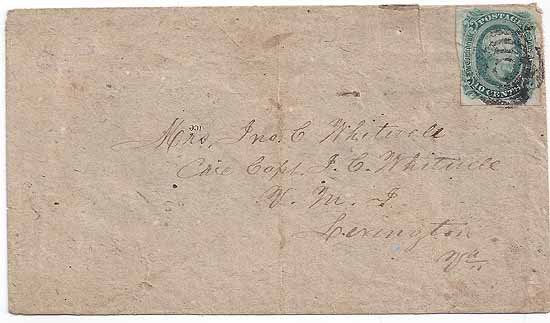 POSTAGE
10 CENTS
Mrs. Jno. C Whitwell
Care Capt. J. C. Whitwell
V. M. I
Lexington
Va.